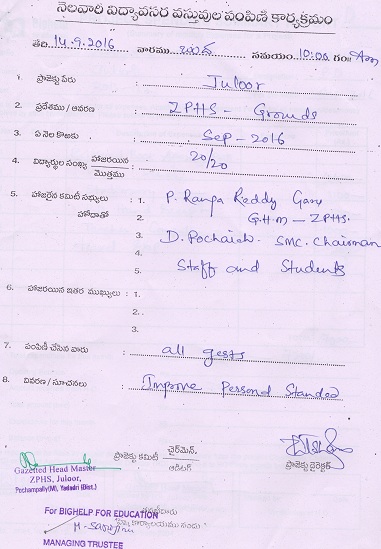 నెలవారీ విద్యావసర వస్తువుల పంపిణీ కార్యక్రమం
తేది: 14.9.2016 వారము బుధ సమయం: 10:00 గం॥ Am
1. ప్రాజెక్టు పేరు : Juloor
2. ప్రదేశము / ఆవరణ : ZPHS - Grounds
3. ఏ నెల కొఱకు : Sep - 2016
4. విద్యార్థుల సంఖ్య హాజరయిన / మొత్తము : 20/20
5. హాజరైన కమిటీ సభ్యులు : 1. P. Ranga Reddy Garu
హోదాతో 2. G.H.M - ZPHS.
3. D. Pochaiah. SMC. Chairman
4.
5. Staff and Students
6. హాజరయిన ఇతర ముఖ్యులు : 1.
2.
3.
7. పంపిణీ చేసిన వారు : all gests
8. వివరణ / సూచనలు : Improve Personal Standed
ప్రాజెక్టు కమిటీ చైర్మెన్, / ఆడిటర్
ప్రాజెక్టు డైరెక్టర్
Gazetted Head Master
ZPHS, Juloor,
Pochampally(M), Yadadri (Dist.)
For BIGHELP FOR EDUCATION
MANAGING TRUSTEE